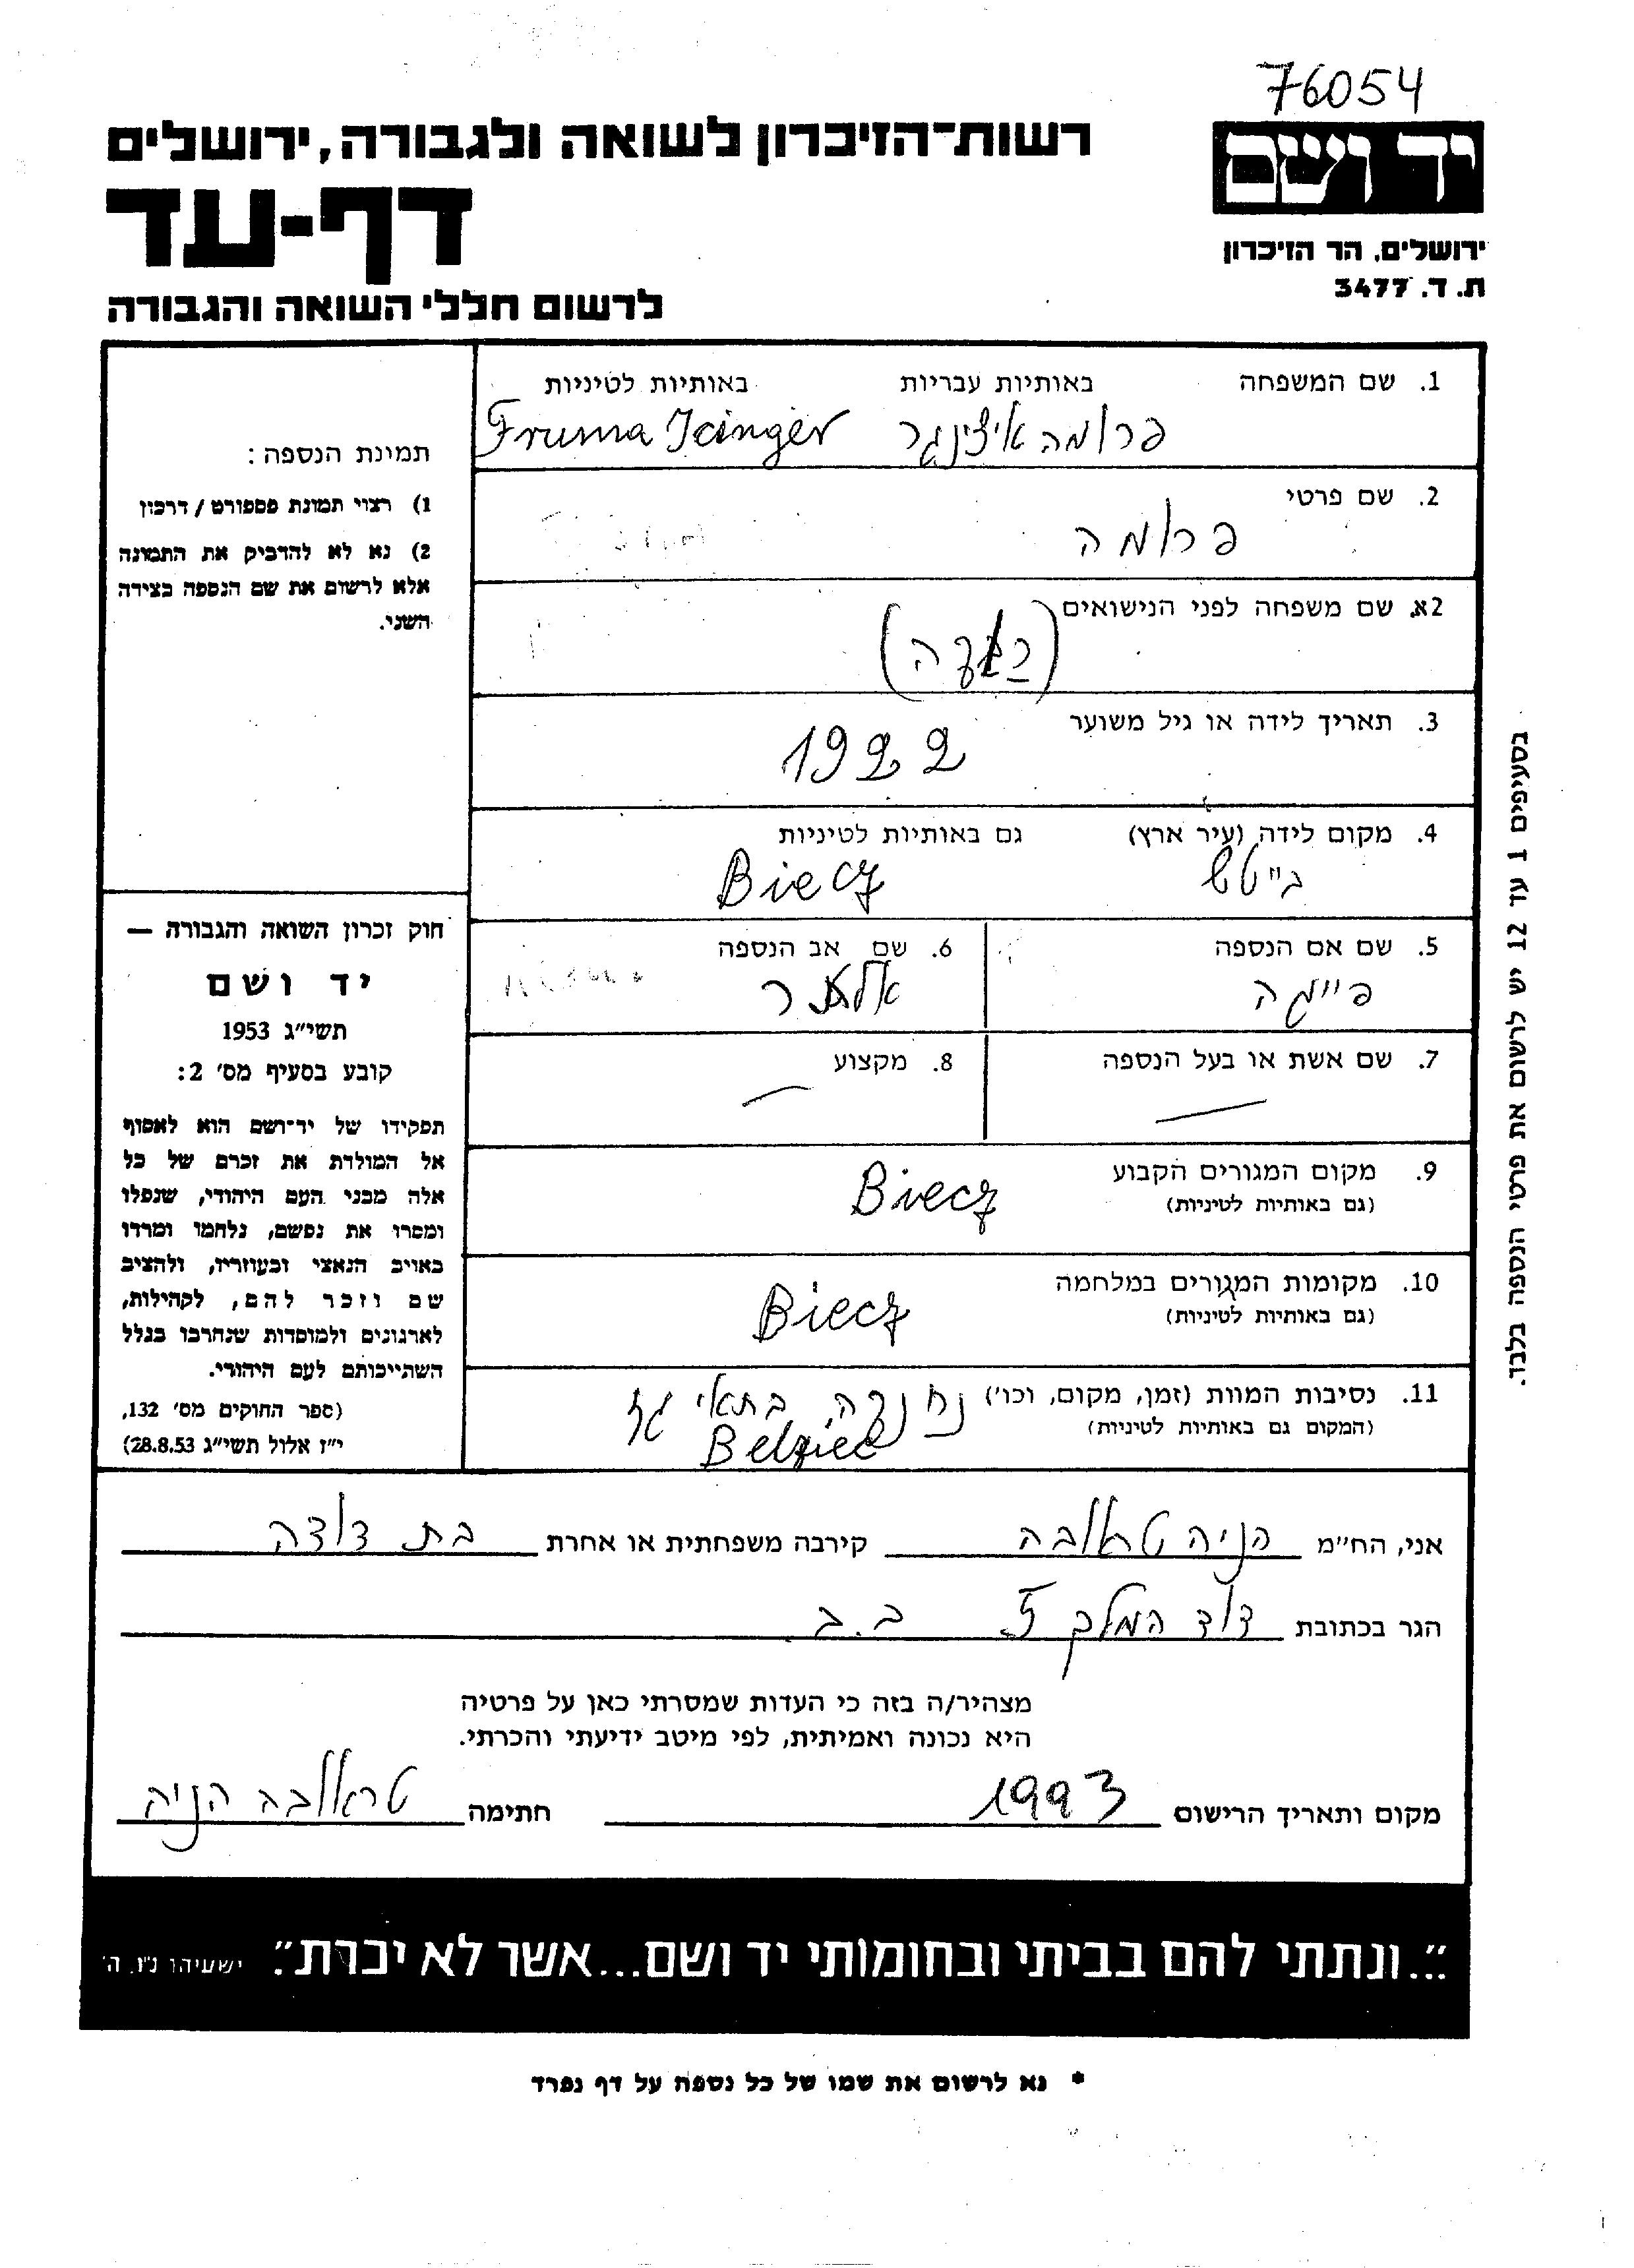 76054
יד ושם
ירושלים, הר הזיכרון
ת. ד. 3477
רשות־הזיכרון לשואה ולגבורה, ירושלים
דף-עד
לרשום חללי השואה והגבורה
1. שם המשפחה באותיות עבריות באותיות לטיניות
פרומה איצינגר Fruma Icinger
2. שם פרטי
פרומה
2א. שם משפחה לפני הנישואים
3. תאריך לידה או גיל משוער
1922
4. מקום לידה (עיר ארץ) גם באותיות לטיניות
בייטש Biecz
5. שם אם הנספה 6. שם אב הנספה
פייגה
7. שם אשת או בעל הנספה 8. מקצוע
9. מקום המגורים הקבוע
(גם באותיות לטיניות)
Biecz
10. מקומות המגורים במלחמה
(גם באותיות לטיניות)
Biecz
11. נסיבות המוות (זמן, מקום, וכו') נחנקה בתאי גז
(המקום גם באותיות לטיניות) Belziec
תמונת הנספה:
1) רצוי תמונת פספורט / דרכון
2) נא לא להדביק את התמונה
אלא לרשום את שם הנספה בצידה
השני.
חוק זכרון השואה והגבורה —
יד ושם
תשי״ג 1953
קובע בסעיף מס' 2:
תפקידו של יד־ושם הוא לאסוף
אל המולדת את זכרם של כל
אלה מבני העם היהודי, שנפלו
ומסרו את נפשם, נלחמו ומרדו
באויב הנאצי ובעוזריו, ולהציב
שם וזכר להם, לקהילות,
לארגונים ולמוסדות שנחרבו בגלל
השתייכותם לעם היהודי.
(ספר החוקים מס' 132,
י״ז אלול תשי״ג 28.8.53)
בסעיפים 1 עד 12 יש לרשום את פרטי הנספה בלבד.
אני, הח״מ הניה טראלבה קירבה משפחתית או אחרת בת דודה
הגר בכתובת דוד המלך 5 ב.ב
מצהיר/ה בזה כי העדות שמסרתי כאן על פרטיה
היא נכונה ואמיתית, לפי מיטב ידיעתי והכרתי.
מקום ותאריך הרישום 1993 חתימה טראלבה הניה
"...ונתתי להם בביתי ובחומותי יד ושם...אשר לא יכרת". ישעיהו נ״ו, ה'
* נא לרשום את שמו של כל נספה על דף נפרד